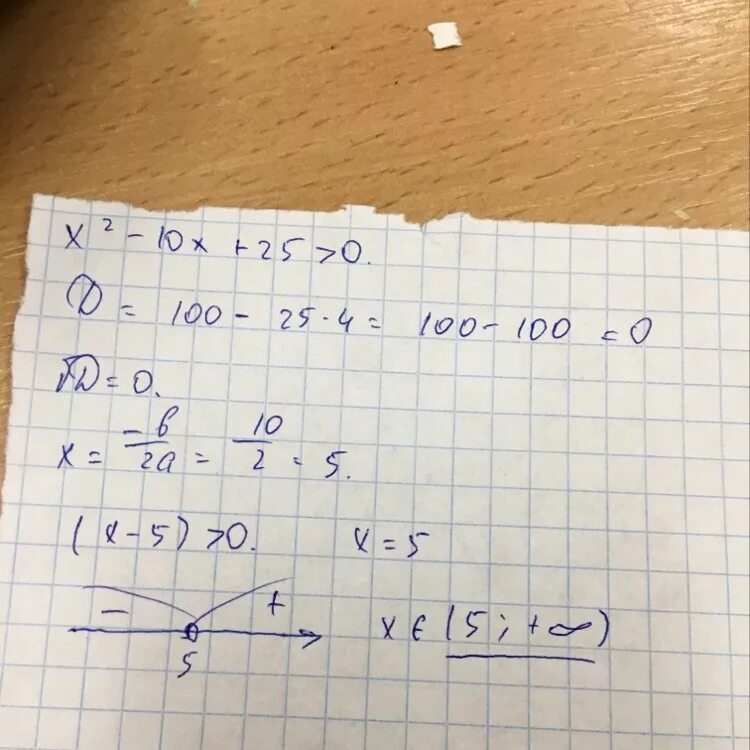 x² - 10x + 25 > 0.
D = 100 - 25·4 = 100 - 100 = 0
√D = 0.
x = -b/2a = 10/2 = 5.
(x - 5) > 0. x = 5
- +
5
x ∈ (5; +∞)